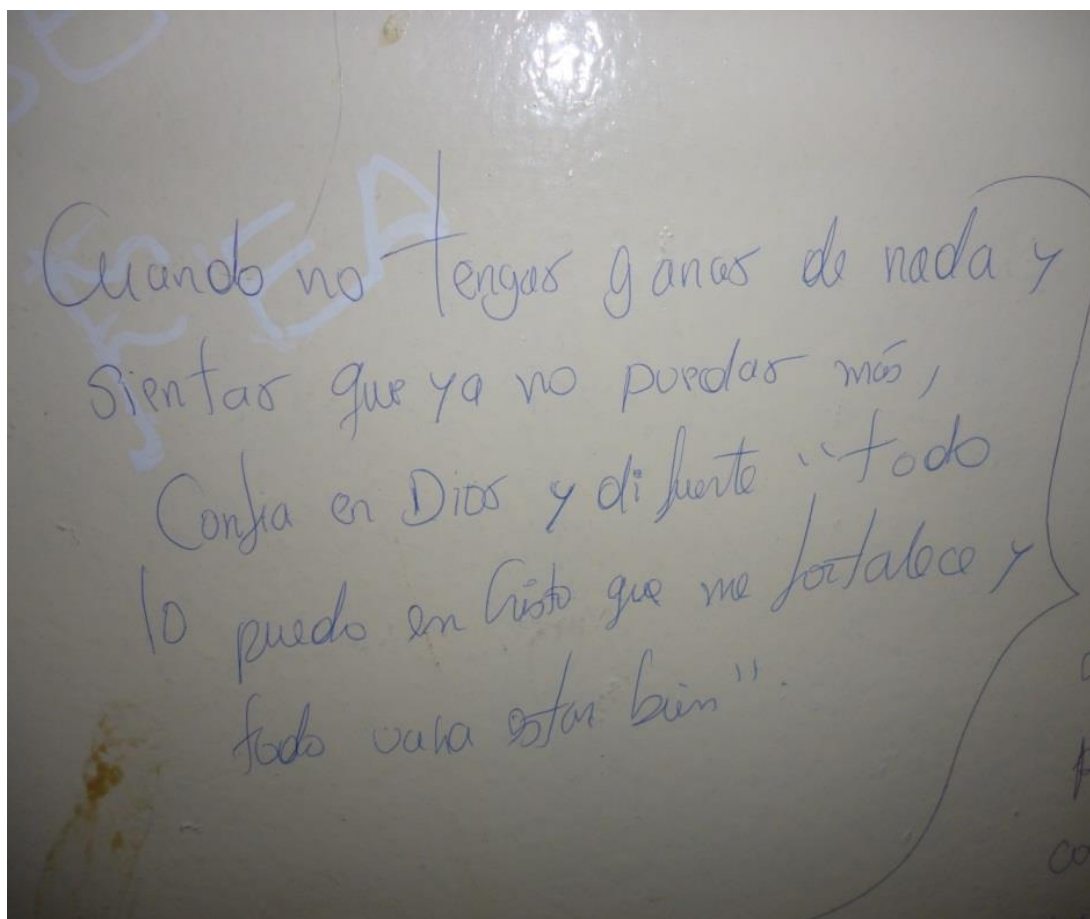 Cuando no tengas ganas de nada y
sientas que ya no puedas más,
Confia en Dios y di fuerte "todo
lo puedo en Cristo que me fortalece y
todo vaha estar bien".